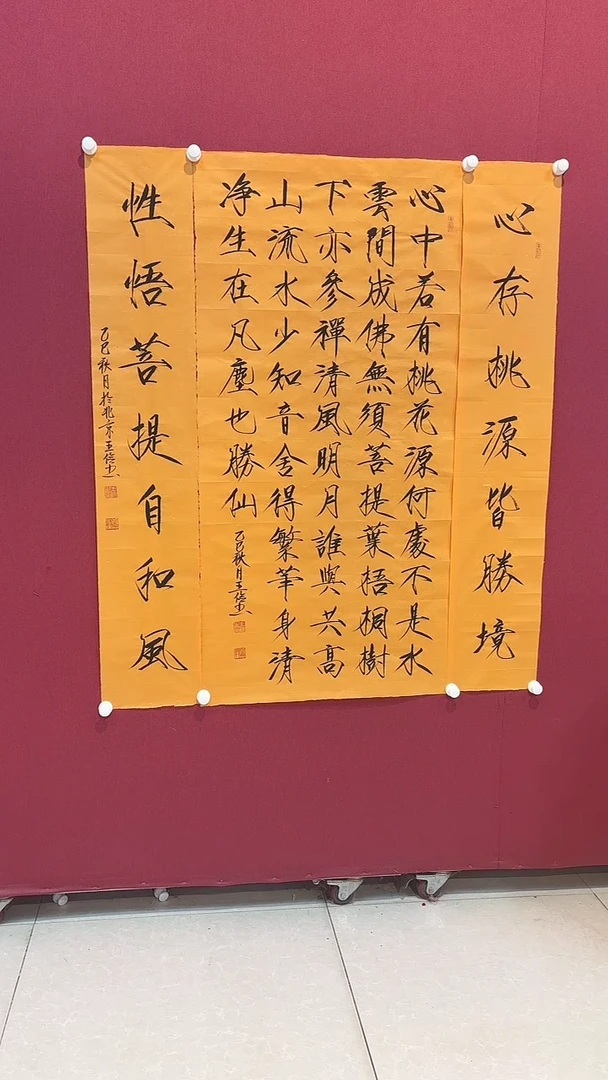 心存桃源皆勝境
心中若有桃花源何處不是水
雲間成佛無須菩提葉梧桐樹
下亦參禪清風明月誰與共高
山流水少知音舍得繁華身清
净生在凡塵也勝仙
乙巳秋月王
性悟菩提自和風
乙巳秋月於北京王